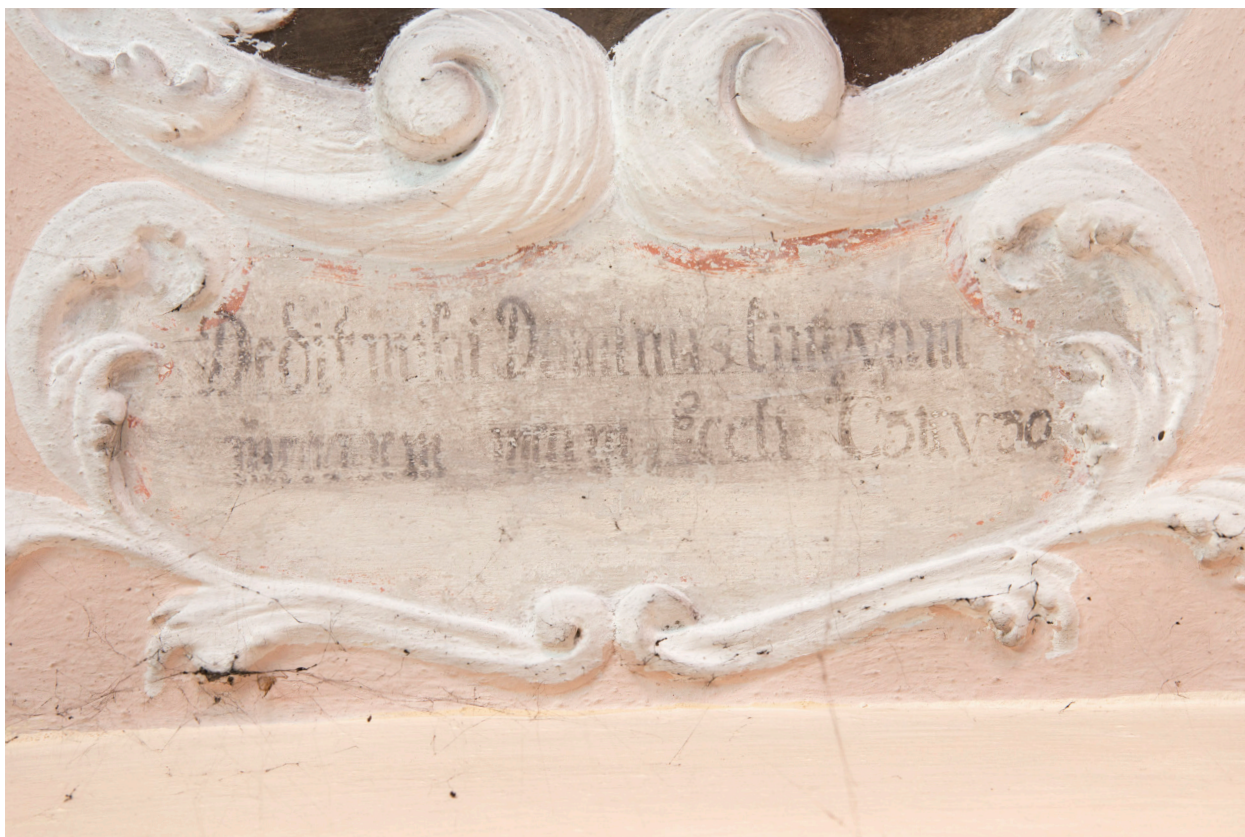 Dedit mihi Dominus linguam
mercedem meam Eccli C 51 v 30